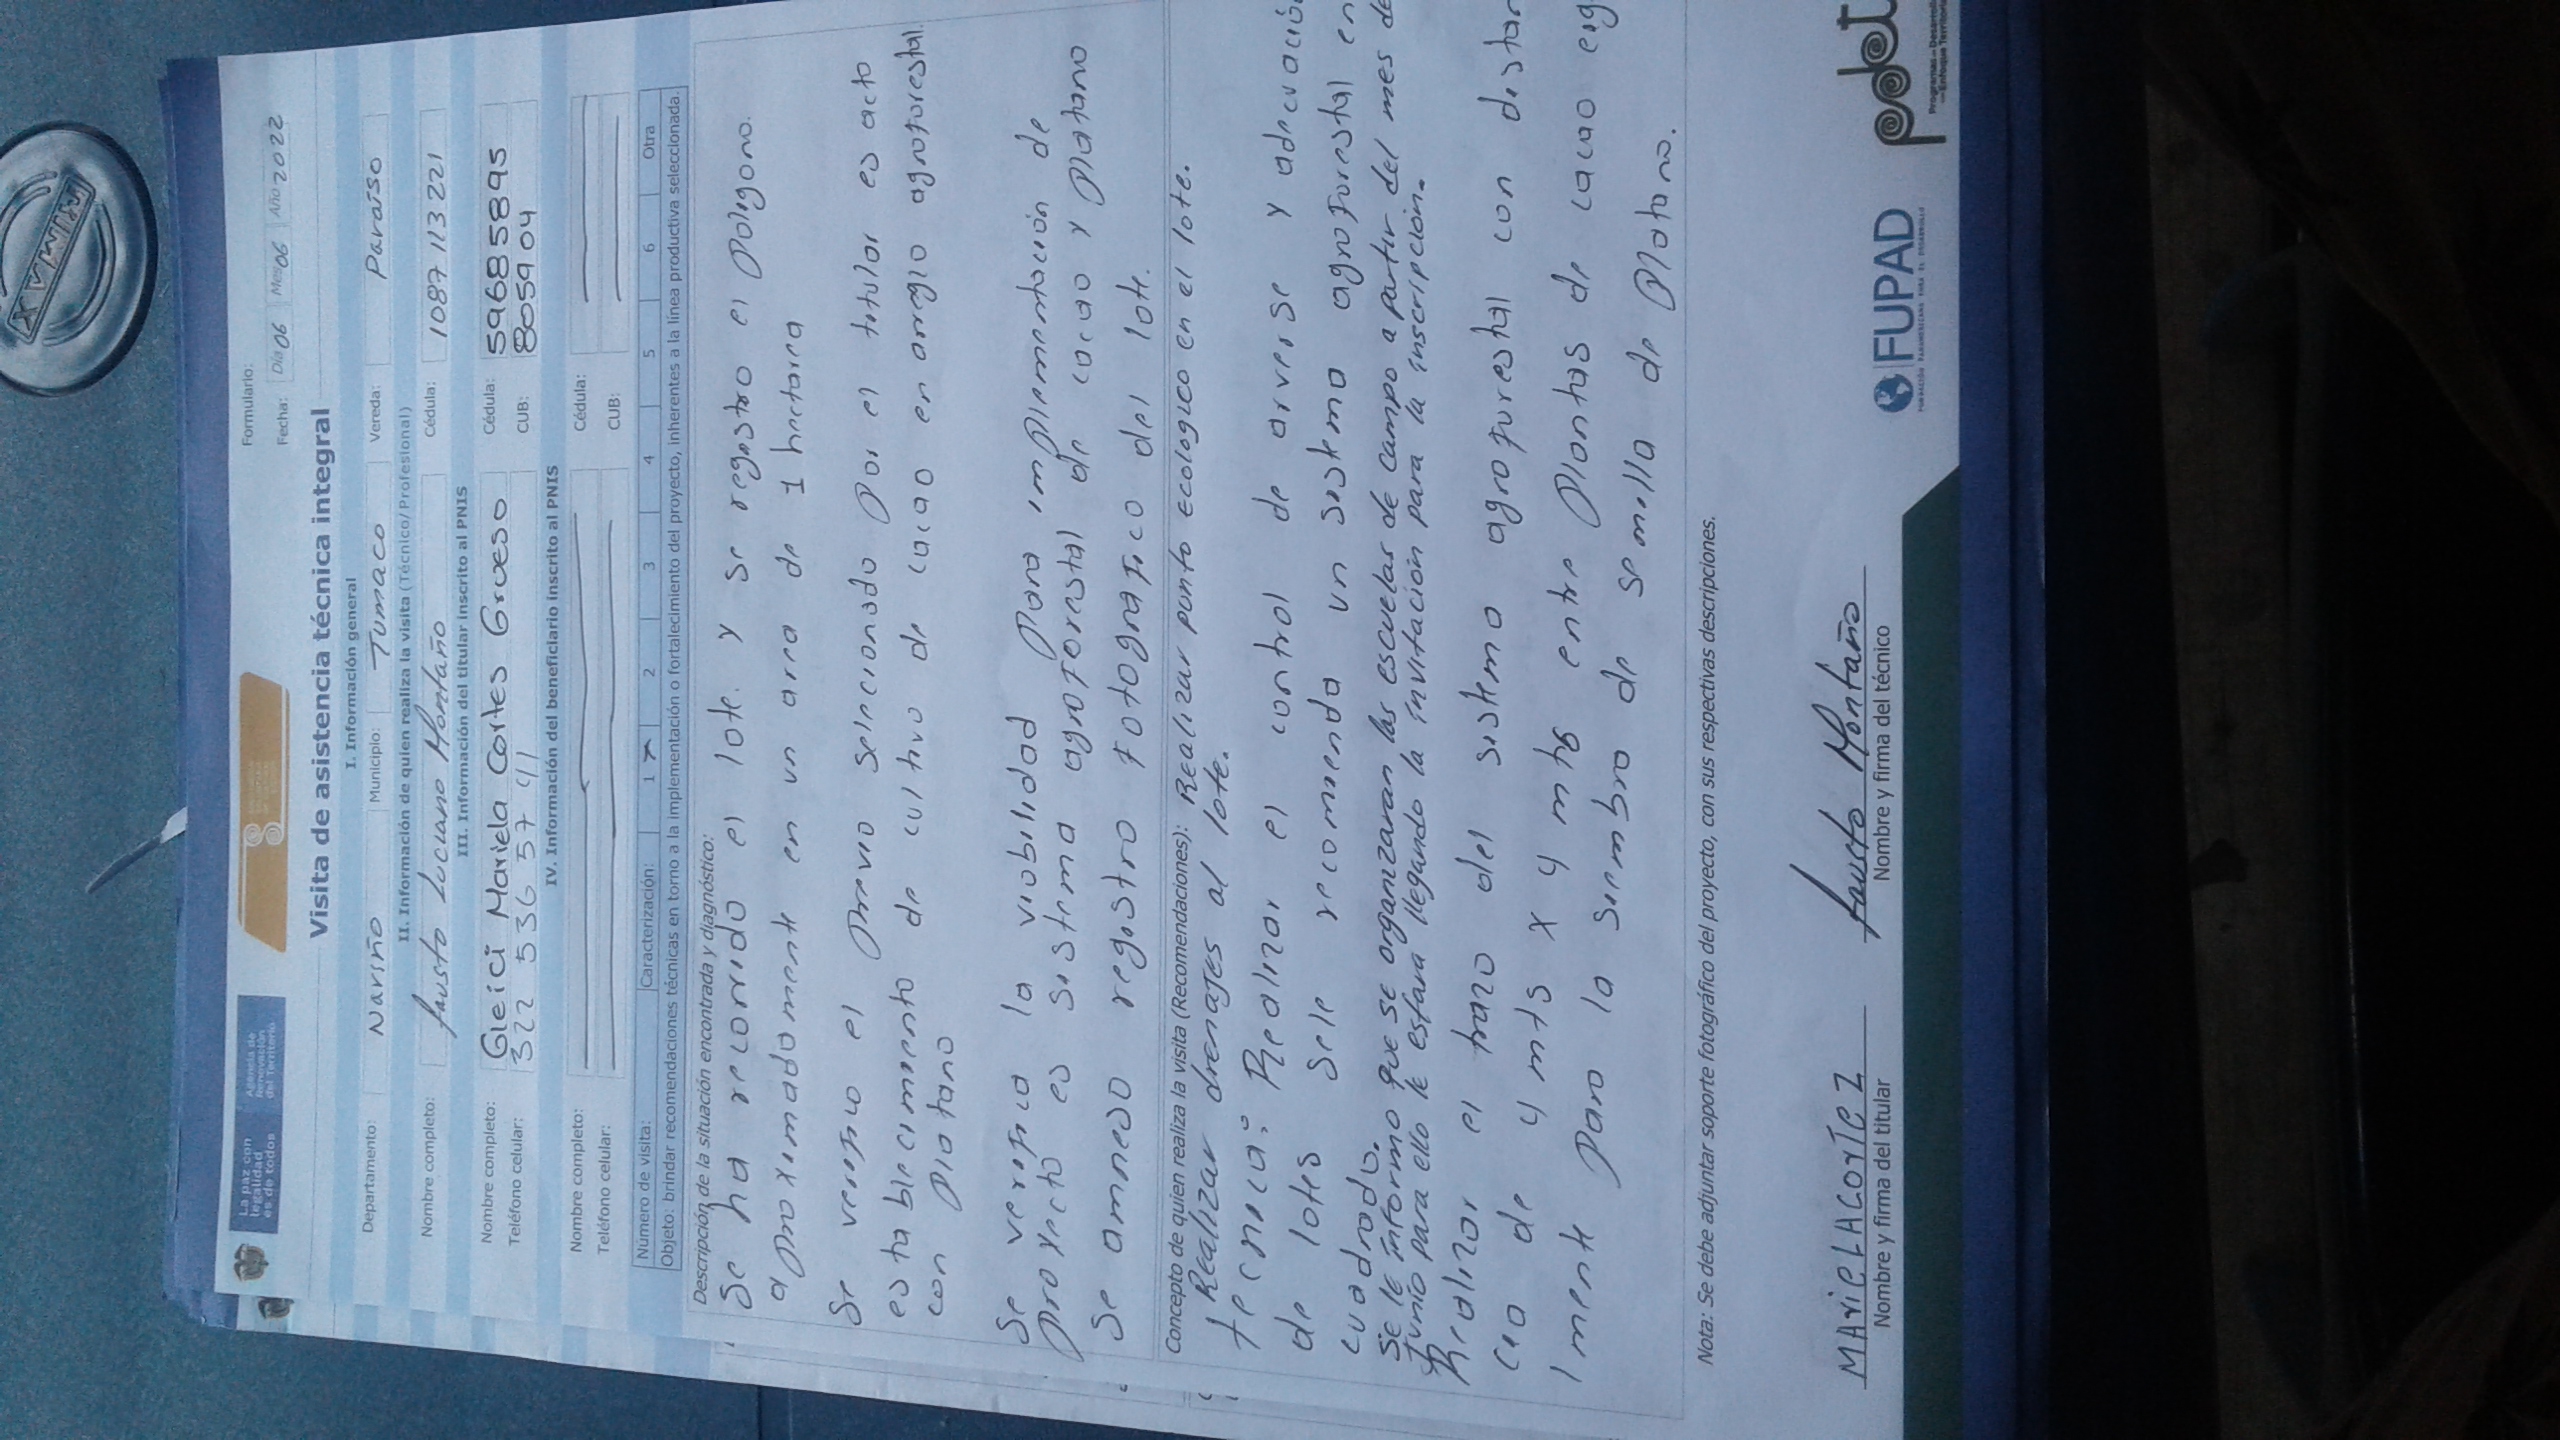 La paz con
legalidad
es de todos
Agencia de
Renovación
del Territorio
Formulario:
Fecha: Día 06 Mes 06 Año 2022
Visita de asistencia técnica integral
I. Información general
Departamento: Nariño Municipio: Tumaco Vereda: Paraíso
II. Información de quien realiza la visita (Técnico/Profesional)
Nombre completo: fausto Luciano Montaño Cédula: 1087 113 221
III. Información del titular inscrito al PNIS
Nombre completo: Gleici Mariela Cortes Grueso Cédula: 59685895
Teléfono celular: 322 536 57 41 CUB: 805904
IV. Información del beneficiario inscrito al PNIS
Nombre completo: Cédula:
Teléfono celular: CUB:
Número de visita: Caracterización: 1 x 2 3 4 5 6 Otra
Objeto: brindar recomendaciones técnicas en torno a la implementación o fortalecimiento del proyecto, inherentes a la línea productiva seleccionada.
Descripción de la situación encontrada y diagnóstico:
Se ha recorrido el lote. y se registro el Poligono.
aproximadamente en un area de 1 hectarea
Se verifico el previo selncionado por el titular es acto
establecimiento de cultivo de cacao en arreglo agroforestal.
con platano
Se verifica la viabilidad para implementación de
proyecto es sistema agroforestal de cacao y platano
Se amnexo registro fotografico del lote.
Concepto de quien realiza la visita (Recomendaciones): Realizar punto ecologico en el lote.
Realizar drenajes al lote.
tecnica: Realizar el control de arverse y adecuación
de lotes sele recomienda un sistema agroforestal en
cuadrado.
Se le informo que se organizaran las escuelas de campo a partir del mes de
Junio para ello le estara llegando la invitación para la inscripción.
Realizar el trazo del sistema agroforestal con distan
cia de 4 mts x 4 mts entre plantas de cacao eig
lmente para la siembra de semilla de platano.
Nota: Se debe adjuntar soporte fotográfico del proyecto, con sus respectivas descripciones.
MArieLACorTeZ fausto Montaño
Nombre y firma del titular Nombre y firma del técnico
FUPAD
FUNDACIÓN PANAMERICANA PARA EL DESARROLLO
pdet
Programas de Desarrollo
con Enfoque Territorial